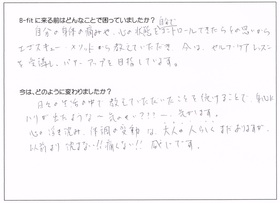 B-fit に来る前はどんなことで困っていましたか？
自分の身体の痛みや、心の状態をコントロールできたらとの思いから
エゴスキュー・メソッドから教えていただき、今は、セルフ・ケア レッスン
を受講し、パワーアップを目指しています。
今は、どのように変わりましたか？
日々の生活の中で 教えていただいたことを続けることで 身心に
が出たような 気がします。
心の浮き沈み、体調の変動 は、まだありますが、
以前より 沈まない!! 痛くない!! 感じです。